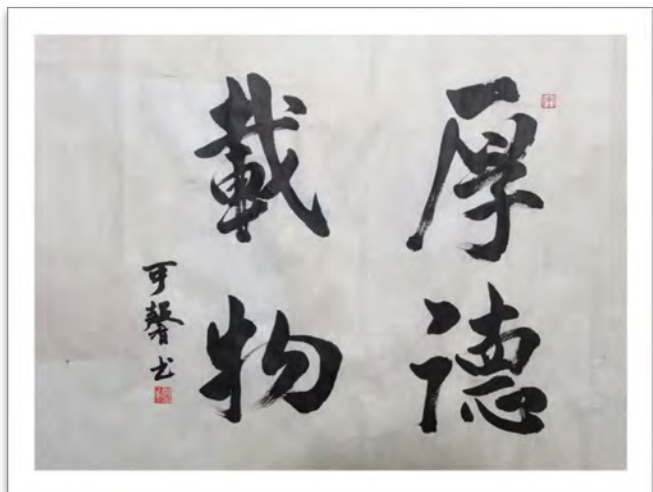 厚德
載物
可馨书